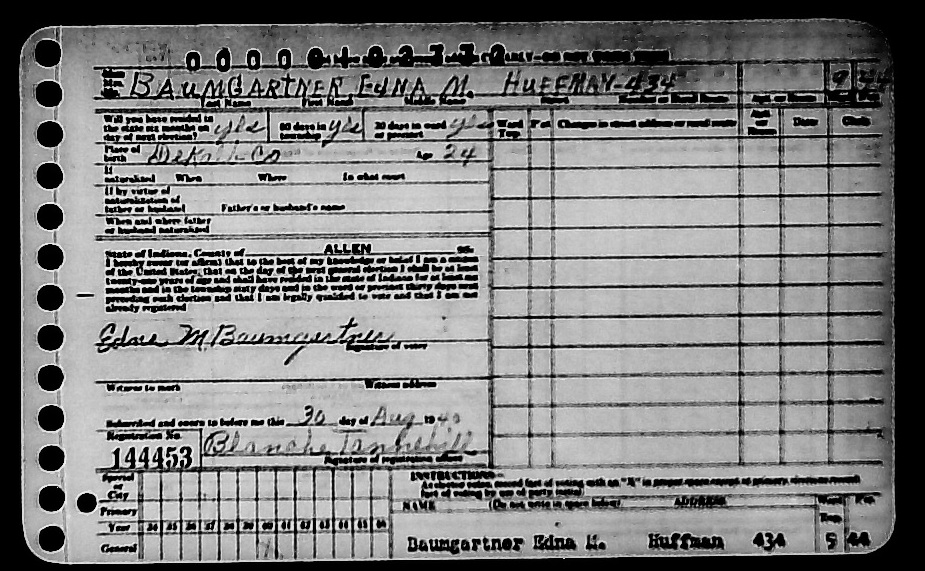 BAUMGARTNER EDNA M. HUFFMAN-434 9 44
Last Name First Name Middle Name Street Number or Rural Route Apt. or Room
Will you have resided in the state six months on day of next election? yes 60 days in township yes 30 days in ward or precinct yes Ward Twp. Pct. Changes in street address or rural route Apt. or Room Date Clerk
Place of birth DeKalb Co Age 24
If naturalized When Where In what court
If by virtue of naturalization of father or husband Father's or husband's name
When and where father or husband naturalized
State of Indiana, County of ALLEN ss.
I hereby swear (or affirm) that to the best of my knowledge or belief I am a citizen
of the United States; that on the day of the next general election I shall be at least
twenty-one years of age and shall have resided in the state of Indiana for at least six
months and in the township sixty days and in the ward or precinct thirty days next
preceding such election and that I am legally qualified to vote and that I am not
already registered
Edna M. Baumgartner
Signature of voter
Witness to mark Witness address
Subscribed and sworn to before me this 30 day of Aug 1940
Registration No. 144453
Blanche Tannehill
Signature of registration officer
INSTRUCTIONS—
Special or City
Primary
Year 34 35 36 37 38 39 40 41 42 43 44 45 46
General
NAME (Do not write in space below) ADDRESS Ward Twp. Pct.
Baumgartner Edna M. Huffman 434 9 44